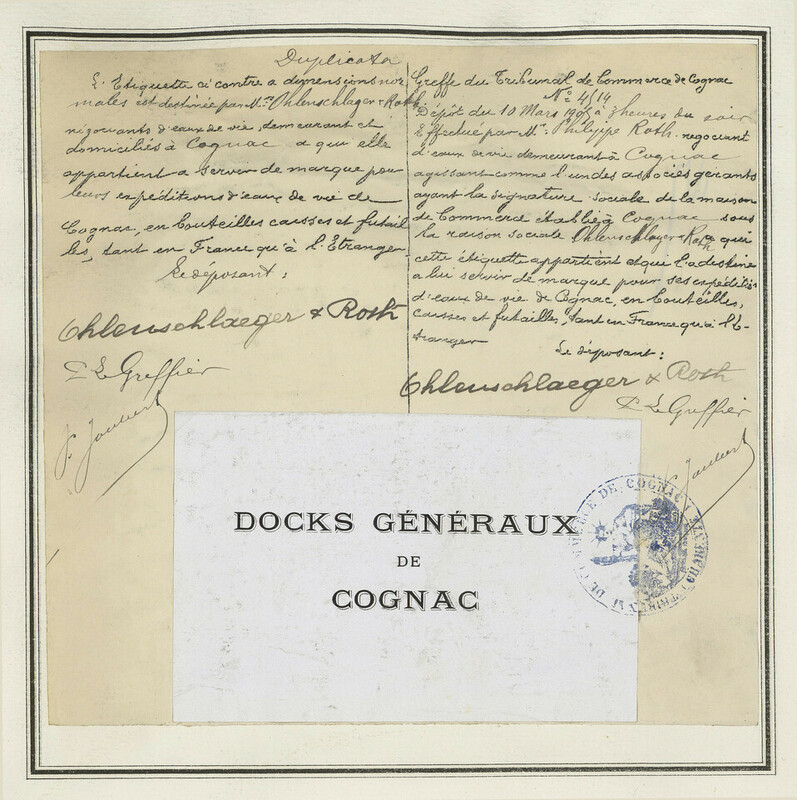 Duplicata
L'Etiquette ci contre a dimensions nor
males est destinée par Mrs Ohlenschlager & Roth
négociants d'eaux de vie, demeurant et
domiciliés à Cognac a qui elle
appartient a servir de marque pour
leurs expéditions d'eaux de vie de
Cognac, en bouteilles caisses et futail
les, tant en France qu'à l'Etranger
Le déposant :
Ohlenschlaeger & Roth
Le Greffier
Joubert
Greffe du Tribunal de Commerce de Cognac
No 4514
Dépôt du 10 Mars à heures du soir
Effectué par Mr Philippe Roth négociant
d'eaux de vie demeurant à Cognac
agissant comme l'un des associés gérants
ayant la signature sociale de la maison
de Commerce établie à Cognac sous
la raison sociale Ohlenschlager & Roth a qui
cette étiquette appartient et qui l'a destine
a lui servir de marque pour ses expéditions
d'eaux de vie de Cognac, en bouteilles,
caisses et futailles, tant en France qu'à l'E-
tranger
Le déposant :
Ohlenschlaeger & Roth
Le Greffier
Joubert
DOCKS GÉNÉRAUX
DE
COGNAC
TRIBUNAL DE COMMERCE DE COGNAC CHARENTE